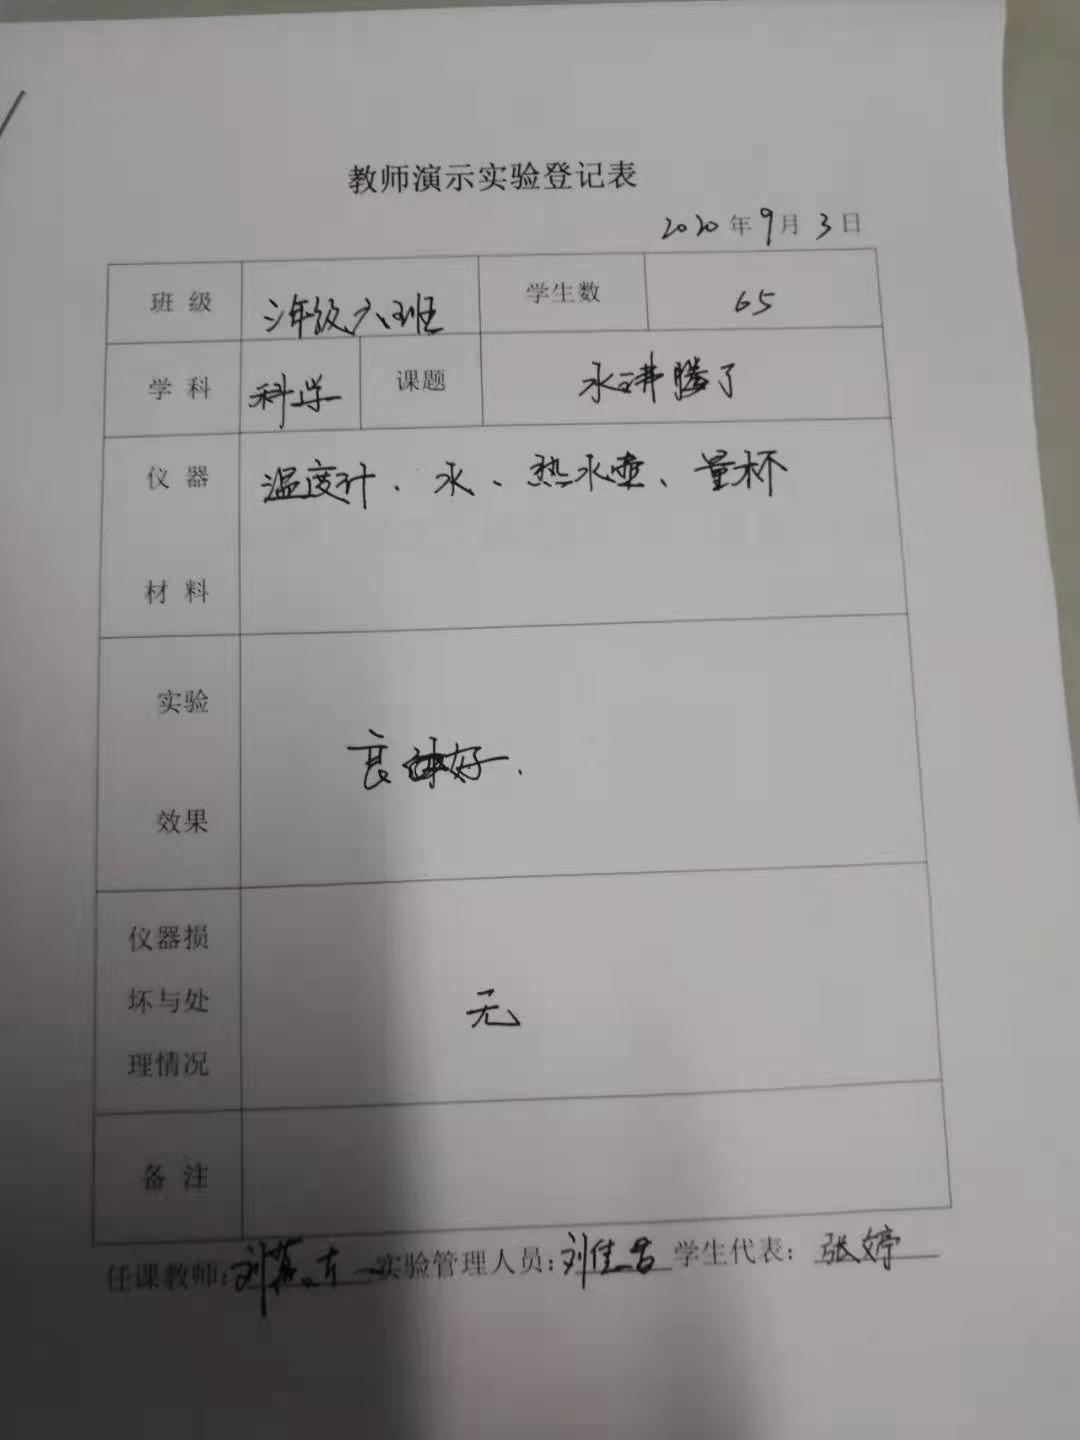 教师演示实验登记表
2020年9月3日
班 级 三年级六班 学生数 65
学 科 科学 课题 水沸腾了
仪 器 温度计、水、热水壶、量杯
材 料
实验
良好.
效果
仪器损
坏与处 无
理情况
备 注
任课教师: 刘 实验管理人员: 刘佳 学生代表: 张婷